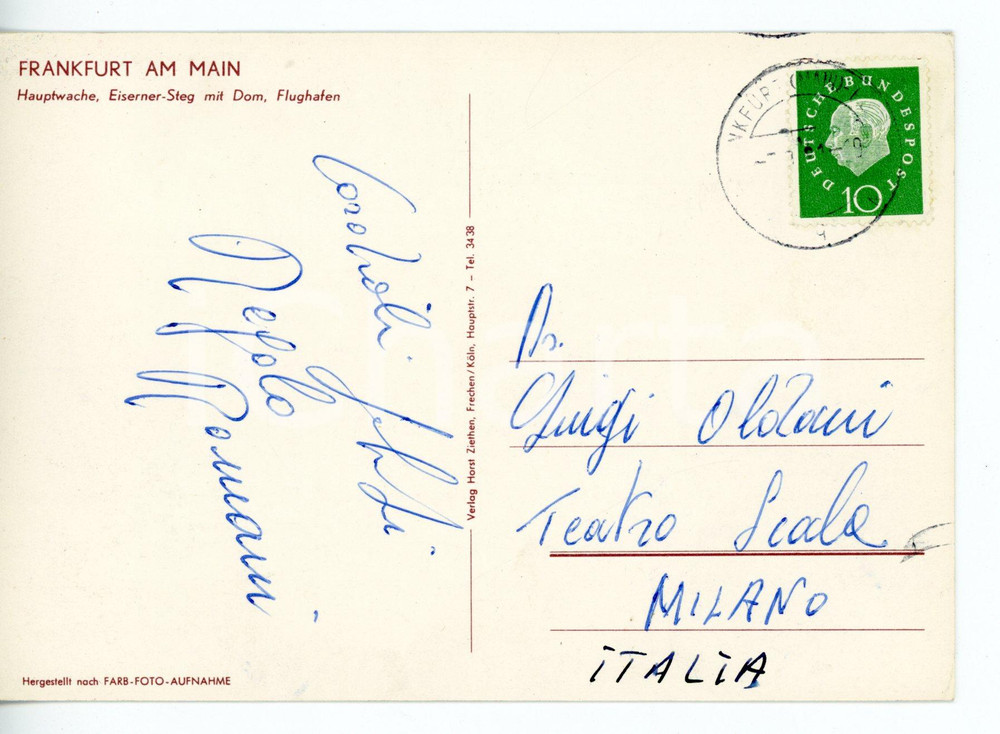 FRANKFURT AM MAIN
Hauptwache, Eiserner-Steg mit Dom, Flughafen
Cordiali
saluti
Romani
Verlag Horst Ziethen, Frechen/Köln, Hauptstr. 7 – Tel. 3438
DEUTSCHE BUNDESPOST
10
Luigi Oldani
Teatro Scala
MILANO
ITALIA
Hergestellt nach FARB-FOTO-AUFNAHME